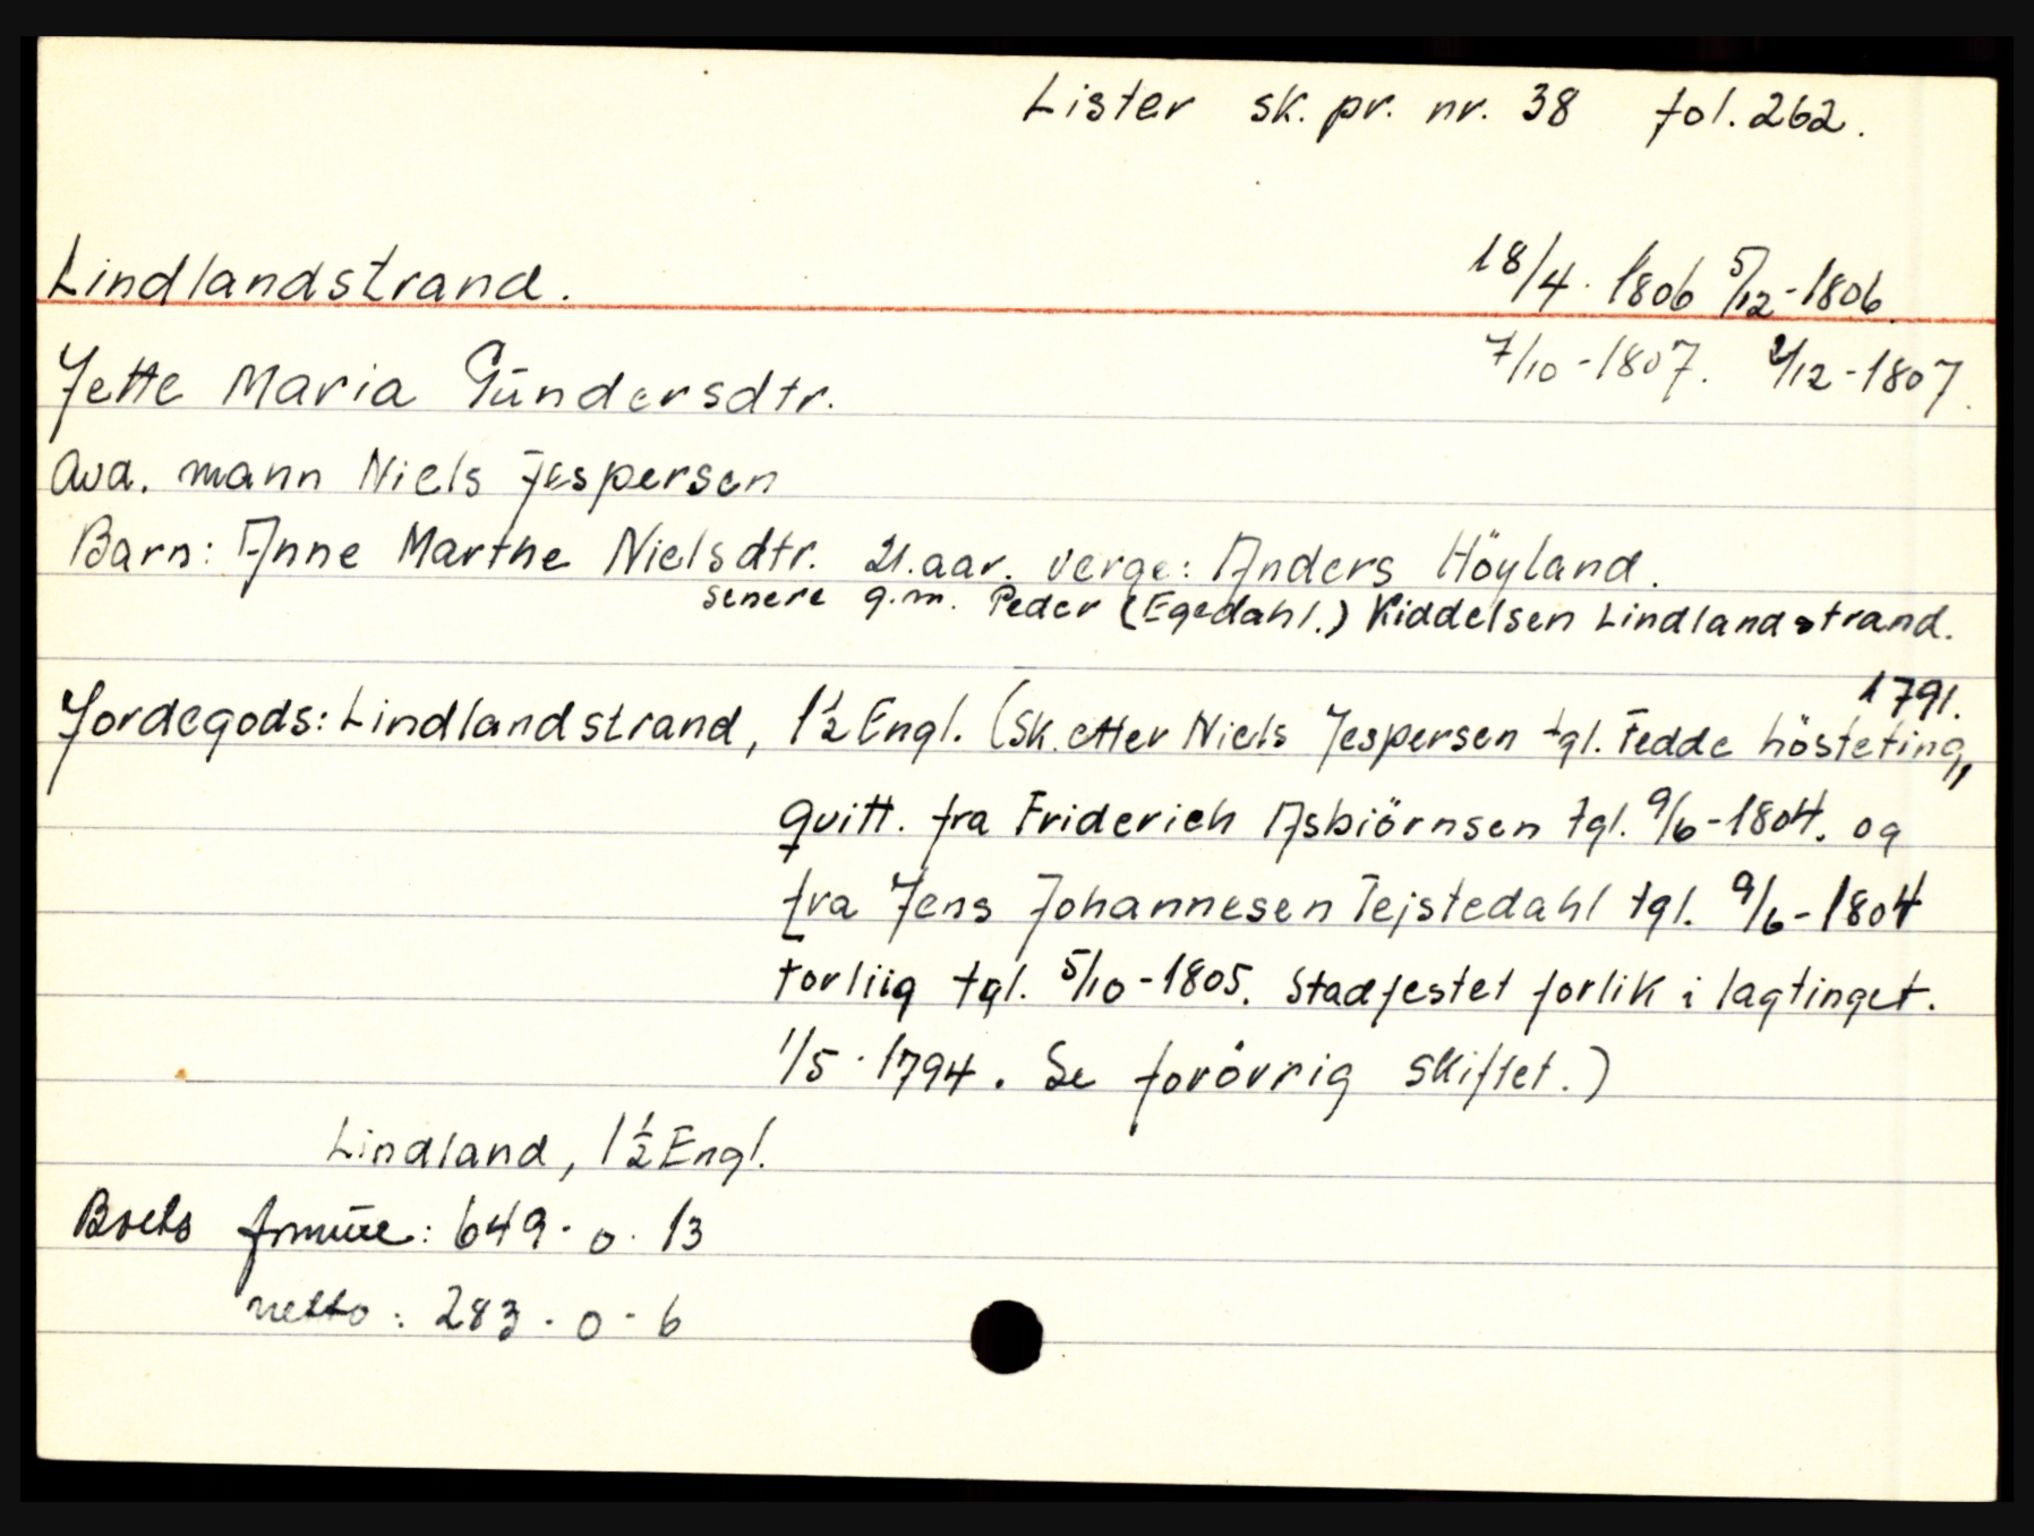 Lister sk. pr. nr. 38 fol. 262.
Lindlandstrand. 18/4. 1806 5/12-1806.
7/10-1807. 2/12-1807.
Jette Maria Gündersdtr.
Avd. mann Niels Jespersen
Barn: Anne Marthe Nielsdtr. 21. aar. verge: Anders Höyland.
senere g.m. Peder (Egedahl.) Kiddelsen Lindlandstrand.
1791.
Jordegods: Lindlandstrand, 1½ Engl. (sk. etter Niels Jespersen tgl. Fedde hösteting,
quitt. fra Friderich Asbiörnsen tgl. 9/6-1804. og
fra Jens Johannesen Tejstedahl tgl. 9/6-1804
forliig tgl. 5/10-1805. Stadfestet forlik i lagtinget.
1/5. 1794. Se forövrig skiftet.)
Lindland, 1½ Engl.
Boets formüe: 649. 0. 13
netto: 283. 0-6